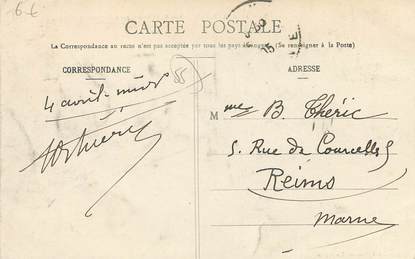 6 €
CARTE POSTALE
La Correspondance au recto n'est pas acceptée par tous les pays étrangers (Se renseigner à la Poste)
CORRESPONDANCE
ADRESSE
85
4 avril
Mme B. Théric
5. Rue de Courcelles
Reims
Marne